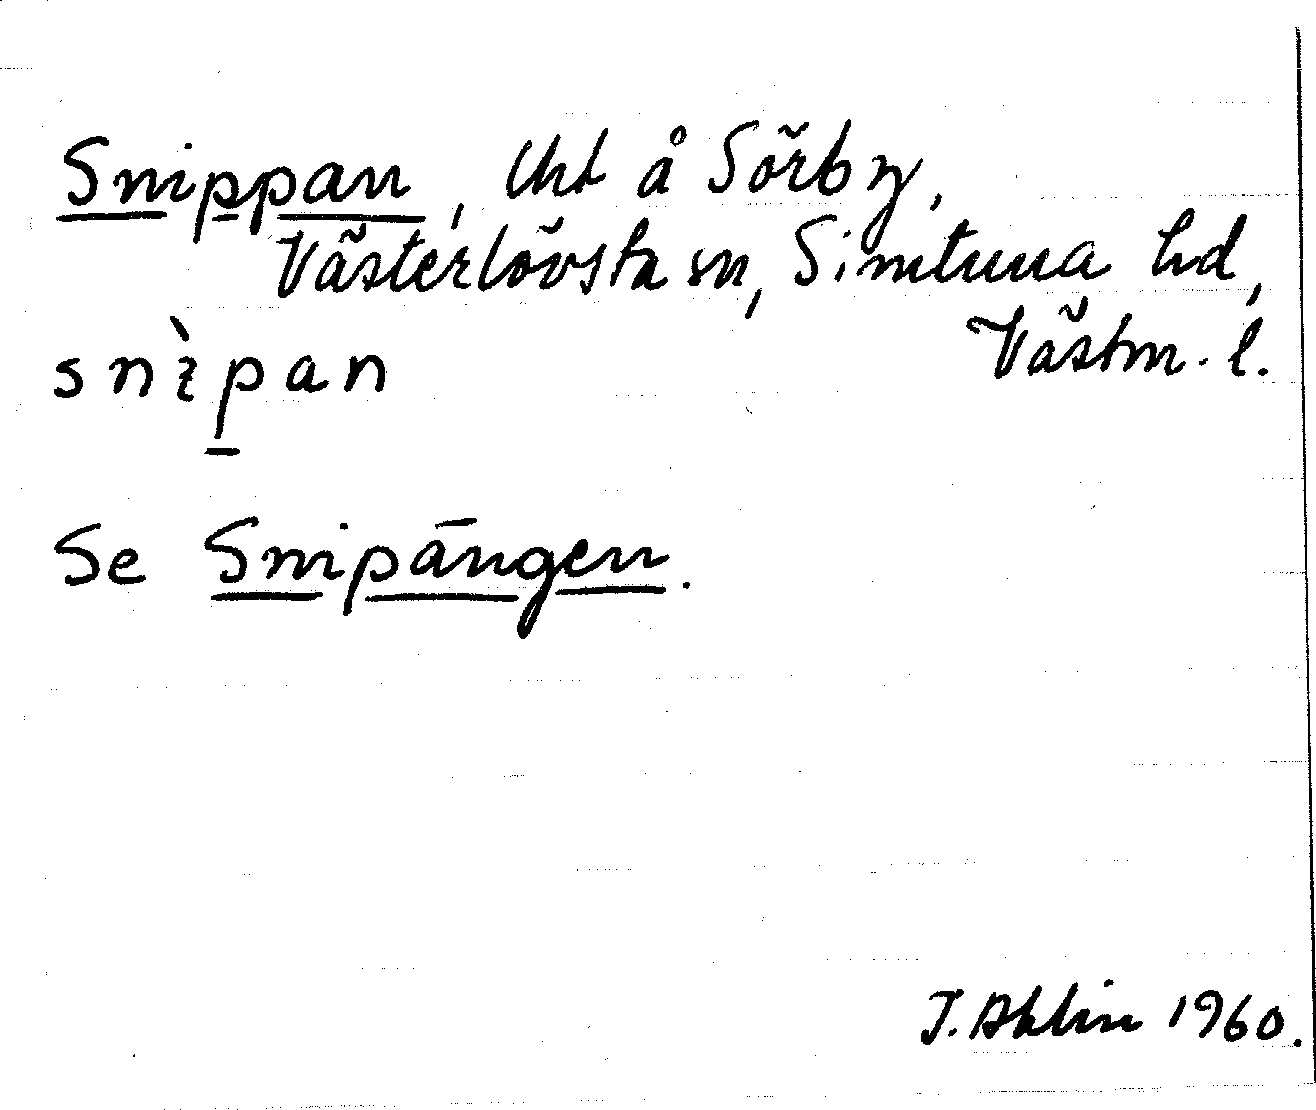 Snippan, Uht å Sörby,
Västerlövsta sn, Simtuna hd,
Västm. l.
snìpan
Se Snipängen.
J. Ahlin 1960.